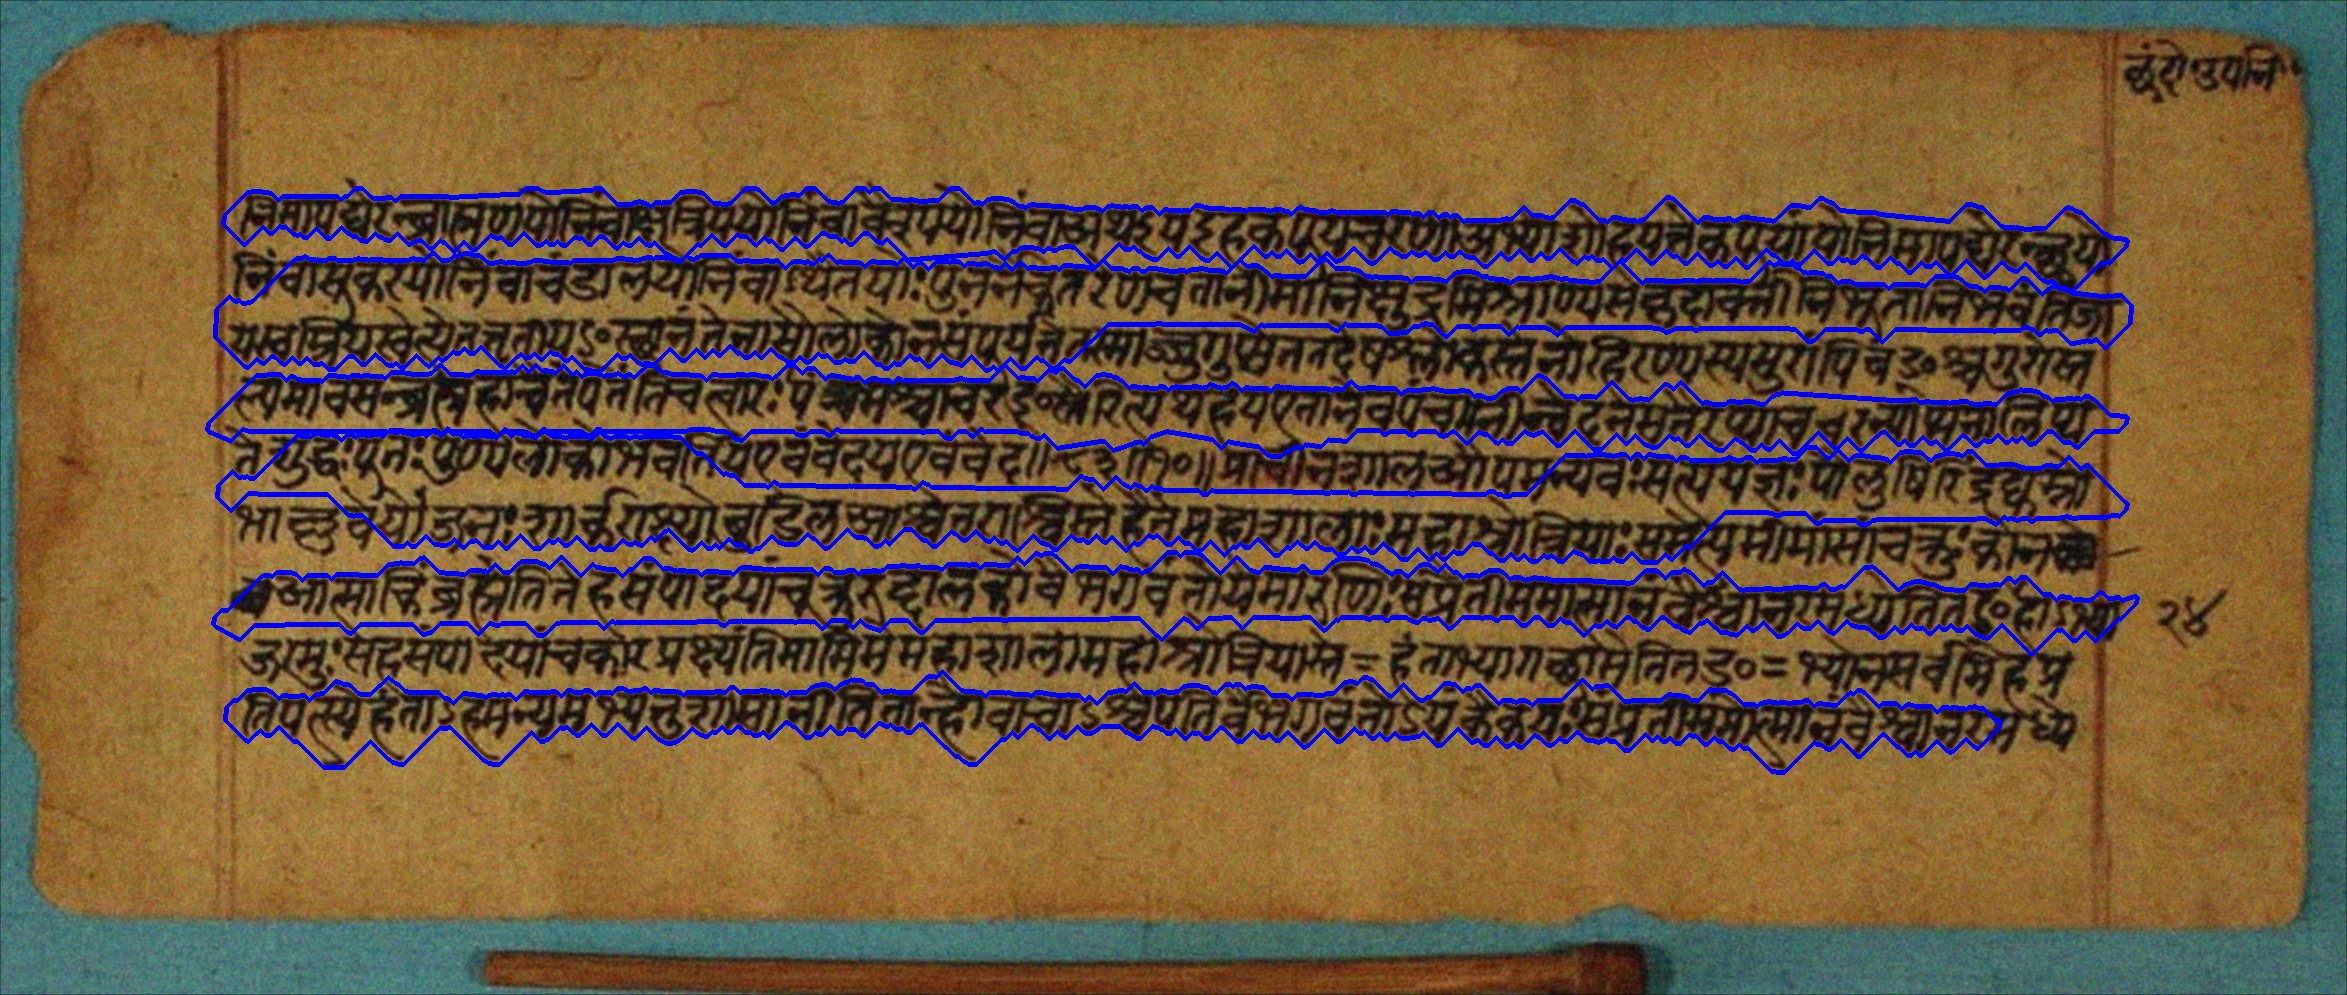 छंदोउपनि
योनिमापद्येरन्ब्राह्मणयोनिंवाक्षत्रिययोनिंवावैश्ययोनिंवाअथयइहकपूयचरणाअभ्याशोहयत्तेकपूयांयोनिमापद्येरन्श्वयो
निंवासूकरयोनिंवाचंडालयोनिंवाऽथैतयोः नतानीमानिक्षुद्राण्यसकृदावर्त्तीनिभूतानिभवंतिजा
यस्वम्रियस्वेत्येतत्तृतीयऽ॰स्थानंतेनासौलोकोनसंपूर्यतेतस्माज्जुगुप्सेततदेषश्लोकस्तेनोहिरण्यस्यसुरांपिबऽ॰श्चगुरोस्त
ल्पमावसन्ब्रह्महाचैतेपतंतिचत्वारः पंचमश्चाचरऽ॰स्तैरित्यथहयएतानेवंपंचाग्नीन्वेदनसतैरप्याचरन्पाप्मनालिप्य
तेशुद्धःपूतःपुण्यलोकोभवतियएवंवेदयएवंवेद॥ ॥१०॥प्राचीनशालऔपमन्यवःसत्ययज्ञःपौलुषिरिंद्रद्युम्नो
भाल्लवेयोजनःशार्कराक्ष्योबुडिलआश्वतराश्विस्तेहैतेमहाशालाःमहाश्रोत्रियाःसमेत्यमीमांसांचक्रुःकोन
आत्माकिंब्रह्मेतितेहसंपादयांचक्रुरुद्दालकोवैभगवंतोयमारुणिःसंप्रतीममात्मानंवैश्वानरमध्येतितऽ॰हाऽभ्या
जग्मुःसहसंपादयांचकारप्रक्ष्यंतिमामिमेमहाशालामहाश्रोत्रियास्ते= नसर्वमिहप्र
तिपत्स्येहंताऽहमन्यमभ्यनुशासानीतितान्होवाचाऽश्वपतिर्वैभगवंतोऽयंकैकेयःसंप्रतीममात्मानंवैश्वानरमध्ये
२४